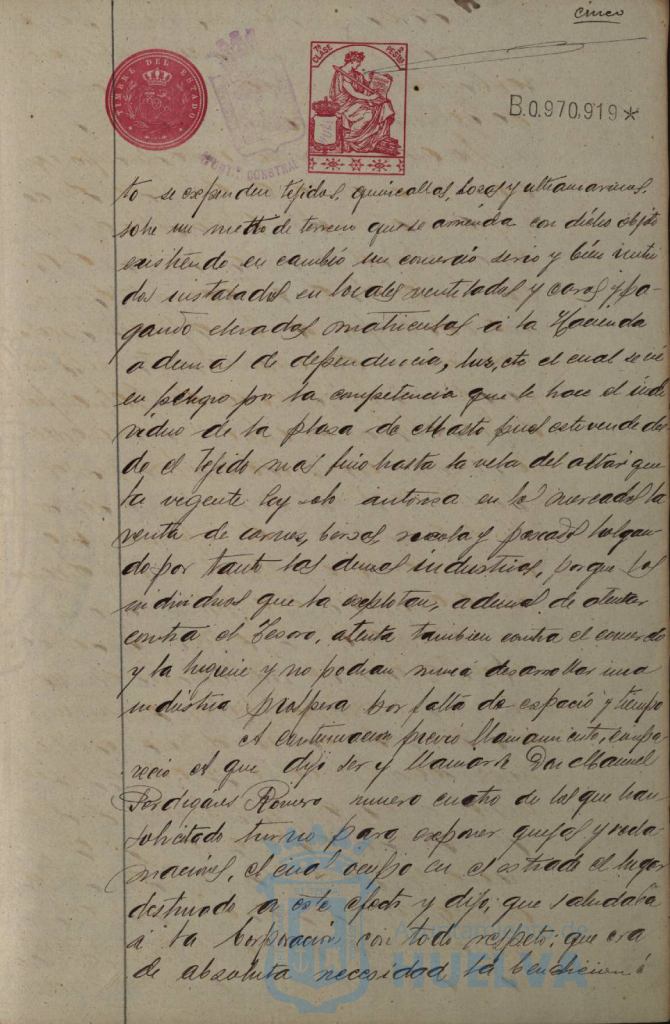 cinco
TIMBRE DEL ESTADO
7ª CLASE 2 PESETAS
B.0.970,919*
to se expenden tejidos, quincallas, lozas y ultramarinos,
sobre un metro de terreno que se arrienda con dicho objeto
existiendo en cambio un comercio serio y bien
instalados en locales ventilados y caros y pa-
gando elevadas matriculas á la Hacienda
ademas de dependencia, luz, etc el cual se vé
en peligro por la competencia que le hace el indi
viduo de la plaza de Abasto pues este vende des
de el tejido mas fino hasta la vela del altar que
la vigente ley solo autoriza en los mercados la
venta de carnes, y pescados holgan-
do por tanto las demas industrias, porque los
individuos que la explotan, ademas de atentar
contra el Tesoro, atenta tambien contra el comercio
y la higiene y no podran nunca desarrollar una
industria prospera por falta de espacio y tiempo
A continuacion previo llamamiento, compa-
recio el que dijo ser y llamarse Don Manuel
Perdigones Romero numero cuatro de los que han
solicitado turno para exponer quejas y recla
maciones, el cual ocupo en el estrado el lugar
destinado a este efecto y dijo; que saludaba
á la Corporacion con todo respeto; que era
de absoluta necesidad la
Ayuntamiento de
HUELVA